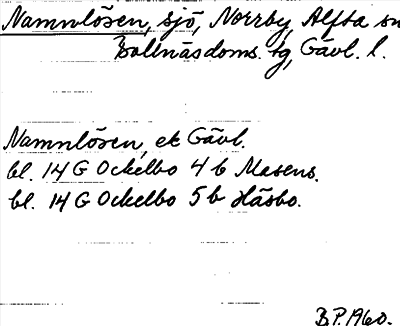 Namnlösen, sjö, Norrby, Alfta sn
Bollnäsdoms. tg, Gävl. l.
Namnlösen, ek Gävl.
bl. 14 G Ockelbo 4 b Masens.
bl. 14 G Ockelbo 5 b Häsbo.
B.P. 1960.